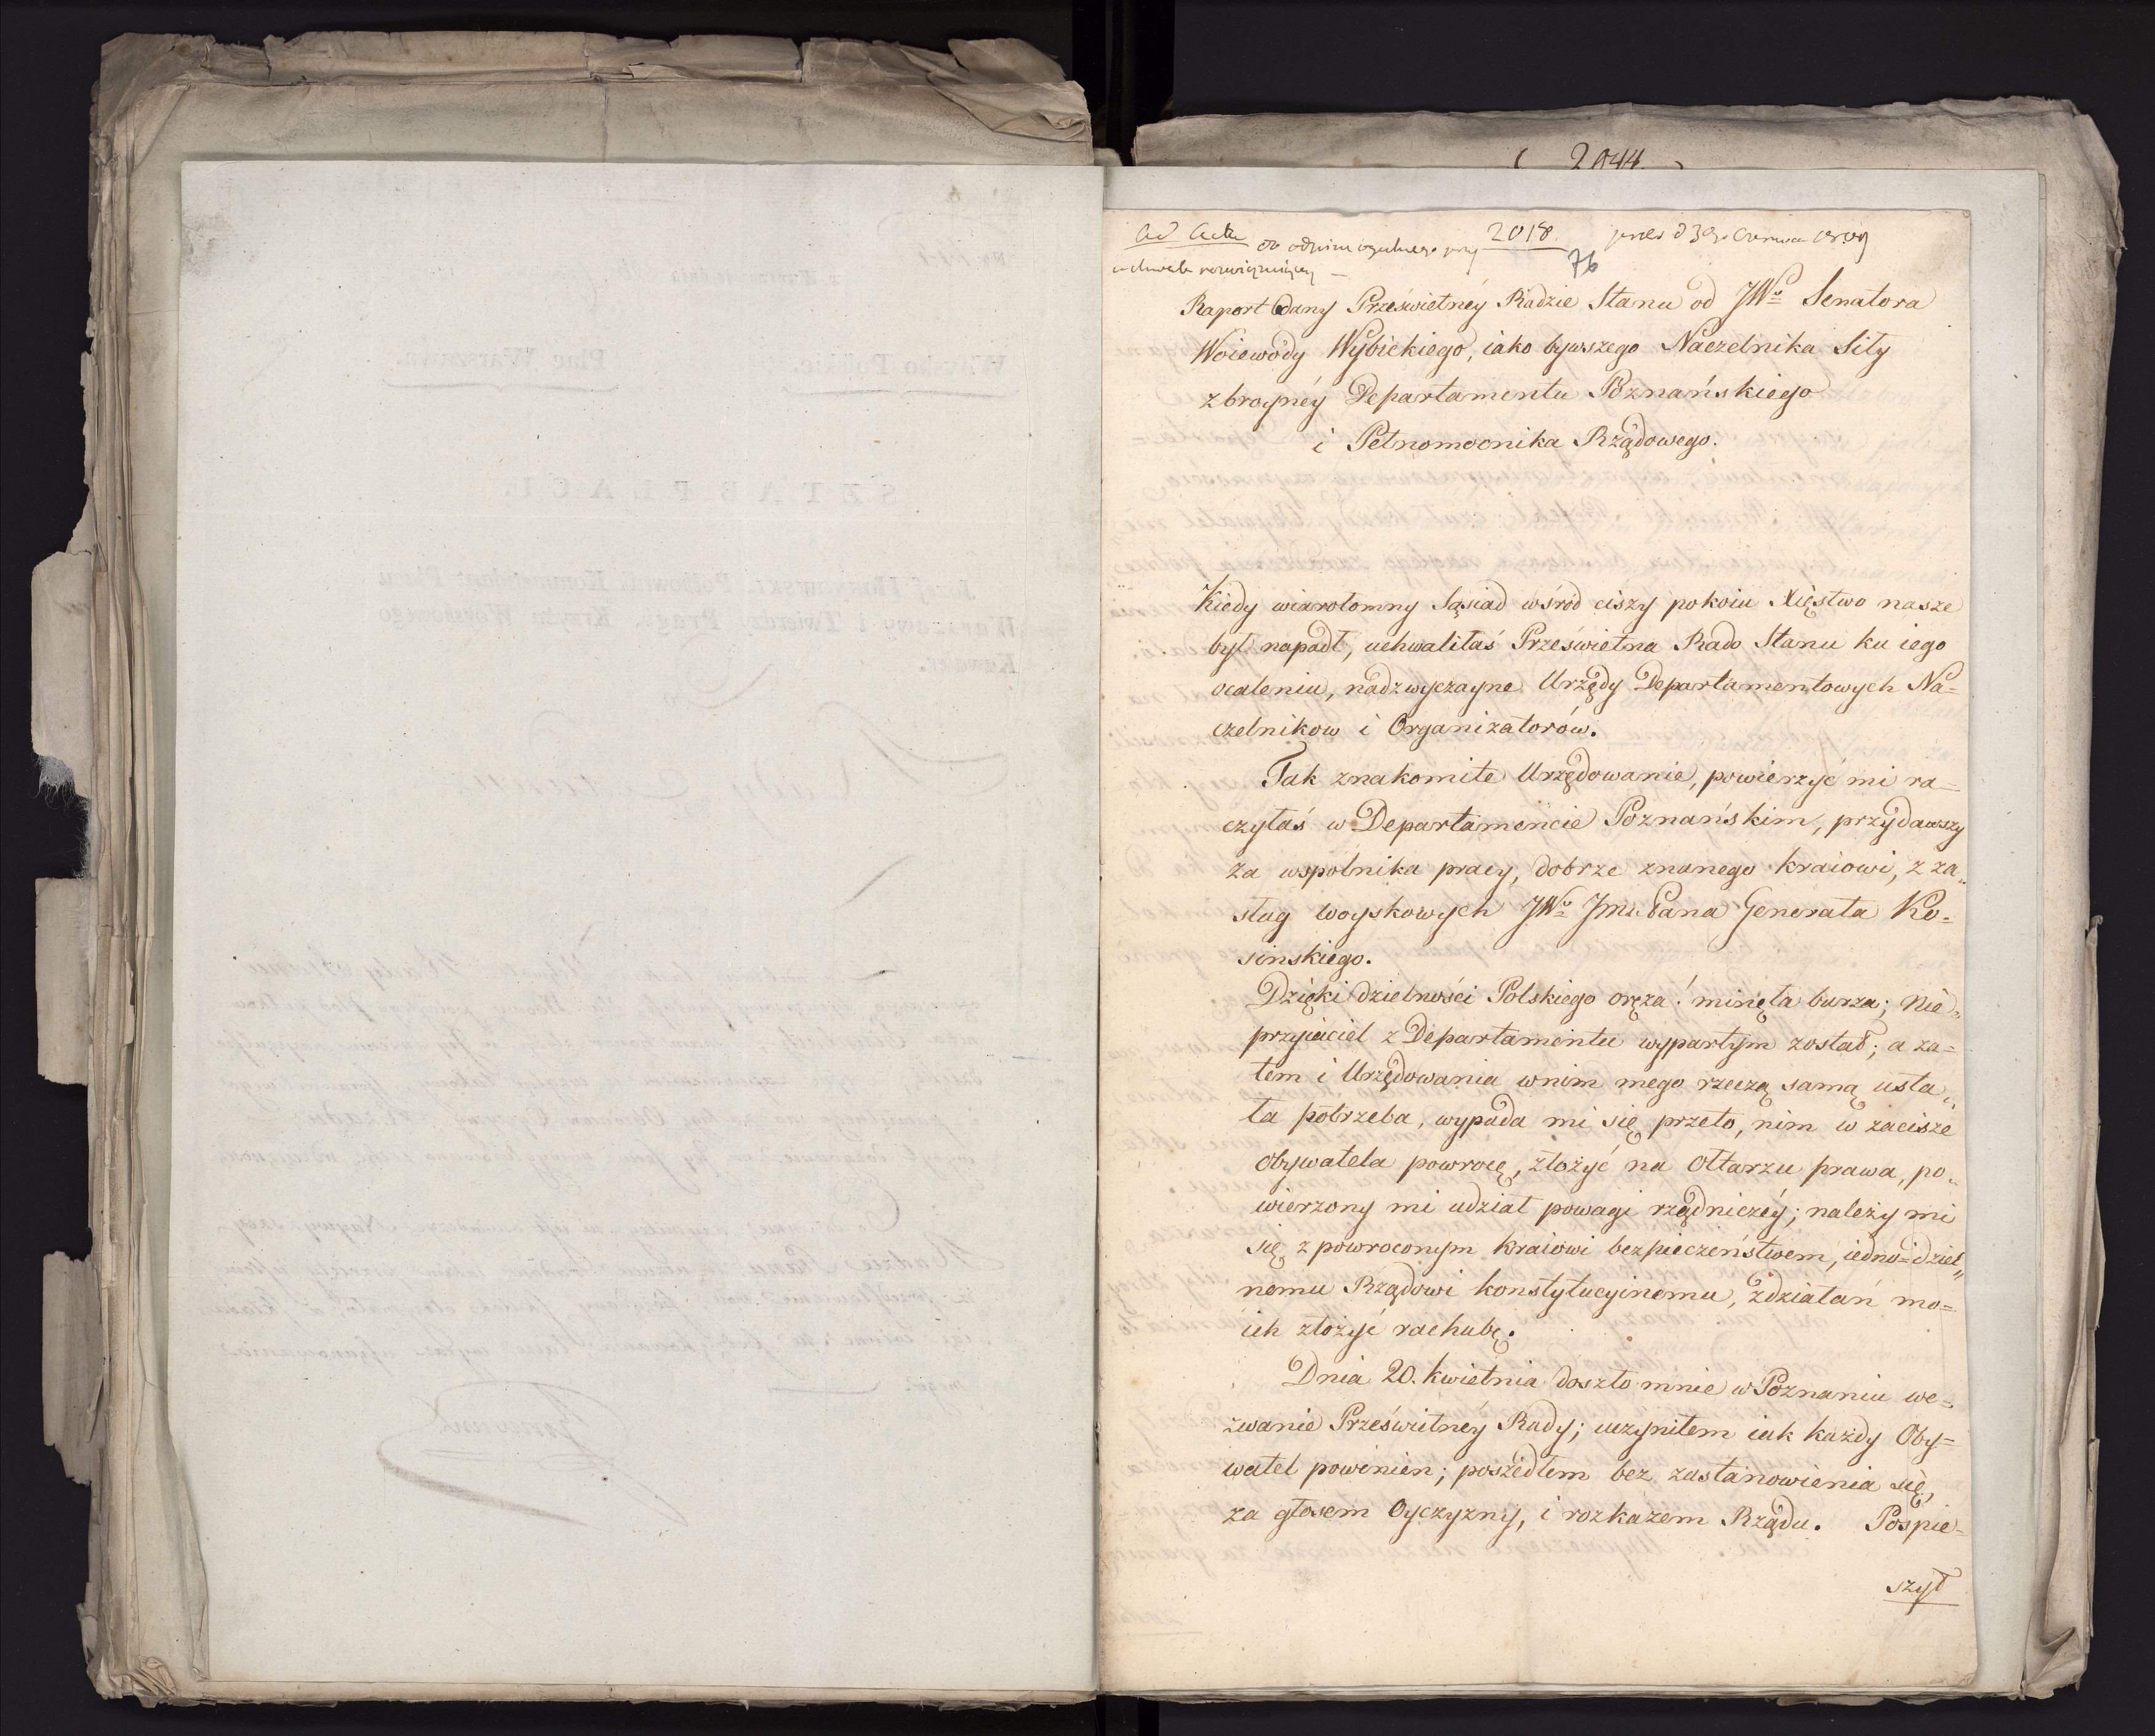 2044
Ad Acta
2018
76
Raport Odany Prześwietnéy Radzie Stanu od JWo Senatora
Woiewody Wybickiego, iako bywszego Naczelnika Siły
zbroynéy Departamentu Poznańskiego
i Pełnomocnika Rządowego.
Kiedy wiarołomny Sąsiad wśród ciszy pokoiu Xięstwo nasze
był napadł, uchwaliłaś Prześwietna Rado Stanu ku iego
ocaleniu, nadzwyczayne Urzędy Departamentowych Na=
czelnikow i Organizatorów.
Tak znakomite Urzędowanie, powierzyć mi ra=
czyłaś w Departamencie Poznańskim, przydawszy
za wspólnika pracy, dobrze znanego kraiowi, z za„
sług woyskowych JWo Jmć Pana Generała Ko=
sinskiego.
Dzięki dzielności Polskiego oręża! minęła burza; Nie„
przyiaciel z Departamentu wypartym został; a za=
tem i Urzędowania w nim mego rzeczą samą usta„
ła potrzeba, wypada mi się przeto, nim w zacisze
obywatela powrocę, złożyć na ołtarzu prawa, po„
wierzony mi udział powagi rządniczéy; należy mi
się z powroconym kraiowi bezpieczeństwem, iedno=dziel„
nemu Rządowi konstytucyinemu, z działań mo=
ich złożyć rachubę.
Dnia 20. kwietnia doszło mnie w Poznaniu we=
zwanie Prześwietnéy Rady; uczyniłem iak każdy Oby=
watel powinien; poszedłem bez zastanowienia się,
za głosem Oyczyzny, i rozkazem Rządu. Pospie=
szył